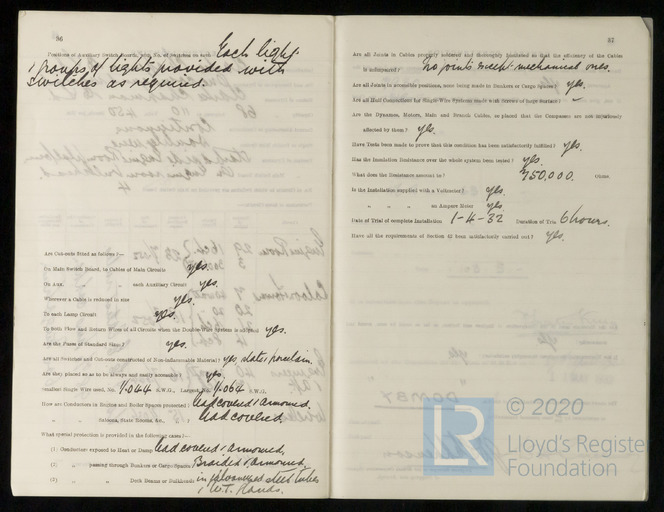 36
Positions of Auxiliary Switch Boards, with No. of Switches on each Each light
& groups of lights provided with
switches as required.
Are Cut-outs fitted as follows?—
On Main Switch Board, to Cables of Main Circuits yes.
On Aux. " " each Auxiliary Circuit yes.
Wherever a Cable is reduced in size yes.
To each Lamp Circuit yes.
To both Flow and Return Wires of all Circuits when the Double-Wire System is adopted yes.
Are the Fuses of Standard Sizes? yes.
Are all Switches and Cut-outs constructed of Non-inflammable Material? yes, slate & porcelain.
Are they placed so as to be always and easily accessible? yes.
Smallest Single Wire used, No. 1/.044 S.W.G., Largest, No. 1/.064 S.W.G.
How are Conductors in Engine and Boiler Spaces protected? lead covered & armoured.
" " Saloons, State Rooms, &c., " ? lead covered.
What special protection is provided in the following cases?—
(1) Conductors exposed to Heat or Damp lead covered & armoured.
(2) " passing through Bunkers or Cargo Spaces Braided & armoured.
(3) " " Deck Beams or Bulkheads in galvanized steel tubes
& W.T. Glands.
37
Are all Joints in Cables properly soldered and thoroughly insulated so that the efficiency of the Cables
is unimpaired? No joints except mechanical ones.
Are all Joints in accessible positions, none being made in Bunkers or Cargo Spaces? yes.
Are all Hull Connections for Single-Wire Systems made with Screws of large surface? ✓
Are the Dynamos, Motors, Main and Branch Cables, so placed that the Compasses are not injuriously
affected by them? yes.
Have Tests been made to prove that this condition has been satisfactorily fulfilled? yes.
Has the Insulation Resistance over the whole system been tested? yes.
What does the Resistance amount to? 750,000. Ohms.
Is the Installation supplied with a Voltmeter? yes.
" " " an Ampere Meter yes
Date of Trial of complete Installation 1-4-32 Duration of Trial 6 hours.
Have all the requirements of Section 42 been satisfactorily carried out? yes.
LR © 2020
Lloyd's Register
Foundation